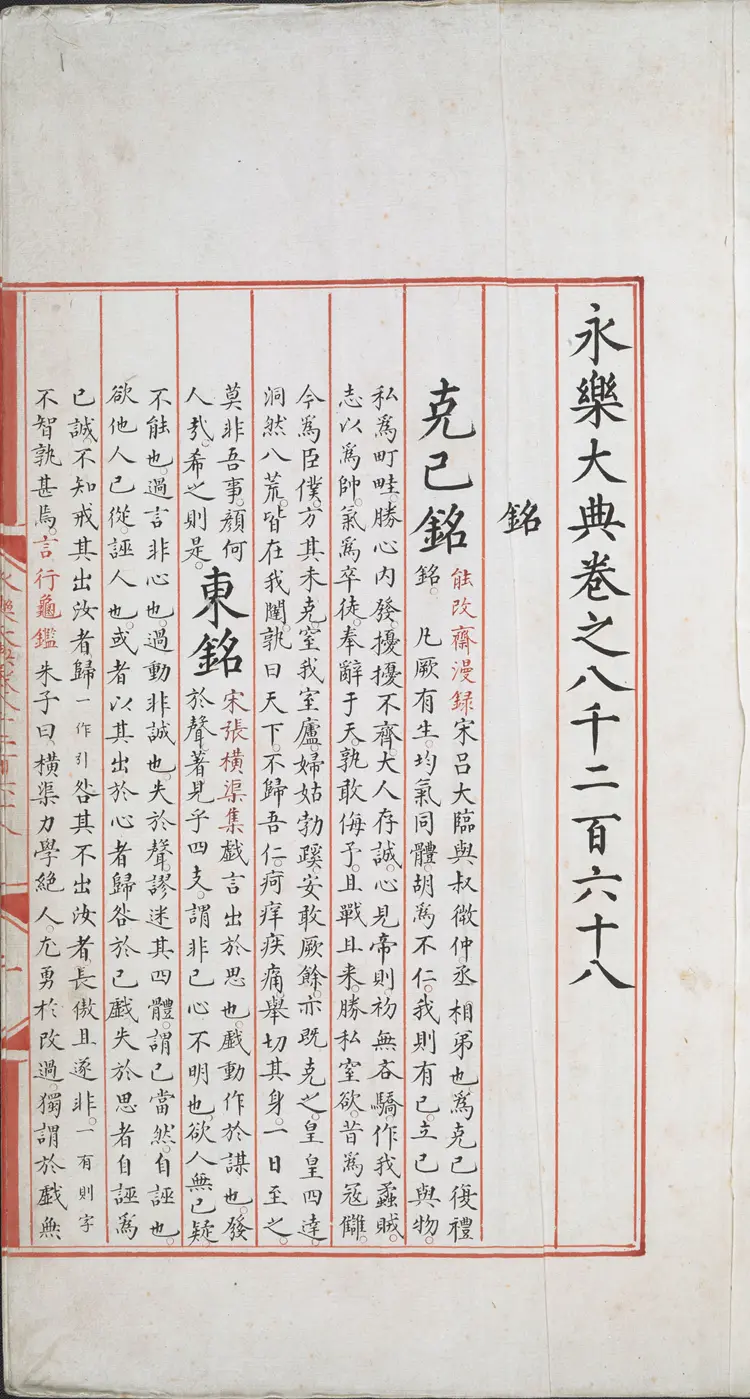 永樂大典卷之八千二百六十八
銘
克己銘
能改齋漫録宋呂大臨與叔微仲丞相弟也爲克己復禮
銘。凡厥有生。均氣同體。胡爲不仁。我則有己。立己與物。
私爲町畦。勝心內發。擾擾不齊。大人存誠。心見帝則。初無吝驕。作我蟊賊。
志以爲帥。氣爲卒徒。奉辭于天。孰敢侮予。且戰且来。勝私窒欲。昔爲冦讎。
今爲臣僕。方其未克。窒我室廬。婦姑勃蹊。安敢厥餘。亦既克之。皇皇四達。
洞然八荒。皆在我闥。孰曰天下。不歸吾仁。疴痒疾痛。舉切其身。一日至之。
莫非吾事。顏何
人㢤。希之則是。
東銘
宋張橫渠集戯言出於思也。戯動作於謀也。發
於聲著見乎四支。謂非己心不明也。欲人無己疑。
不能也。過言非心也。過動非誠也。失於聲。謬迷其四體。謂己當然。自誣也。
欲他人己從。誣人也。或者以其出於心者歸咎於己戯失於思者自誣爲
己誠不知戒其出汝者歸一作引咎其不出汝者。長傲且遂非。一有則字
不智孰甚焉。言行龜鑑朱子曰。橫渠力學絶人。尤勇於改過。獨謂於戯無